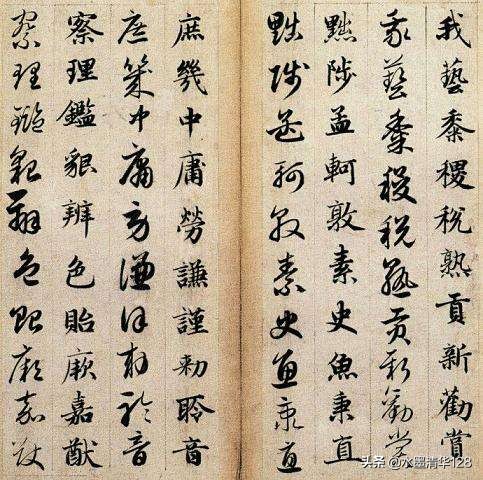 我藝黍稷稅熟貢新勸賞
我藝黍稷稅熟貢新勸賞
黜陟孟軻敦素史魚秉直
黜陟孟軻敦素史魚秉直
庶幾中庸勞謙謹勑聆音
庶幾中庸勞謙謹勑聆音
察理鑑貌辨色貽厥嘉猷
察理鑑貌辨色貽厥嘉猷
头条 @水墨清华128